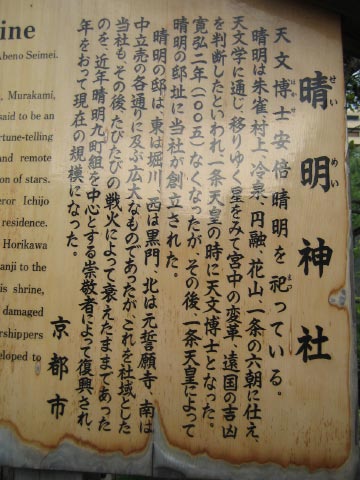 晴明神社
せい
めい
天文博士安倍晴明を祀っている。
まつ
晴明は朱雀、村上、冷泉、円融、花山、一条の六朝に仕え、
天文学に通じ、移りゆく星をみて宮中の変革、遠国の吉凶
を判断したといわれ一条天皇の時に天文博士となった。
寛弘二年(一〇〇五)なくなったが、その後、一条天皇によって
晴明の邸址に当社が創立された。
晴明の邸は、東は堀川、西は黒門、北は元誓願寺、南は
中立売の各通りに及ぶ広大なものであったが、これを社域とした
当社も、その後、たびたびの戦火によって衰えたままであった
のを、近年晴明九町組を中心とする崇敬者によって復興され、
年をおって現在の規模になった。
京都市
ine
Abeno Seimei.
, Murakami,
said to be an
rtune-telling
and remote
tion of stars.
eror Ichijo
residence.
Horikawa
anji to the
is shrine,
damaged
rshippers
eloped to